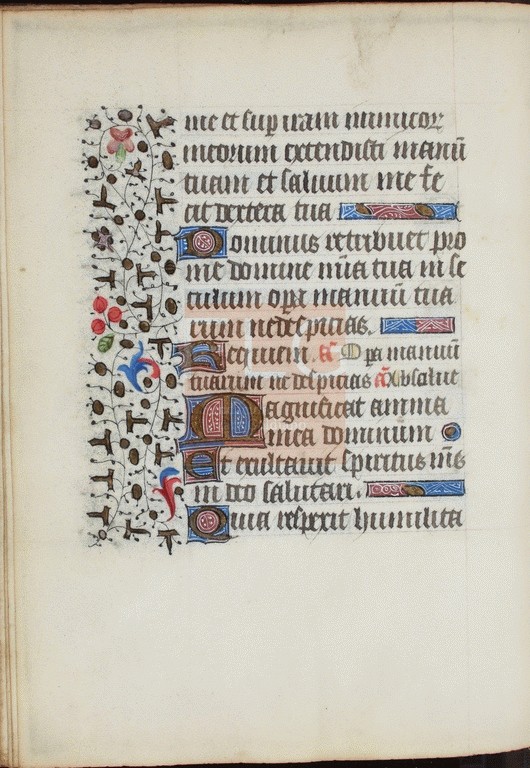 me et sup iram inimicoꝝ
meorum extendisti manū
tuam et saluum me fe
cit dextera tua
Dominus retribuet pro
me domine mīa tua in se
culum opa manuū tua
rum ne despicias.
Requiem. añ. Opa manuū
tuarum ne despicias añ. Absolue
Magnificat anima
mea dominum
Et exultauit spiritus mēs
in deo salutari.
Quia respexit humilita